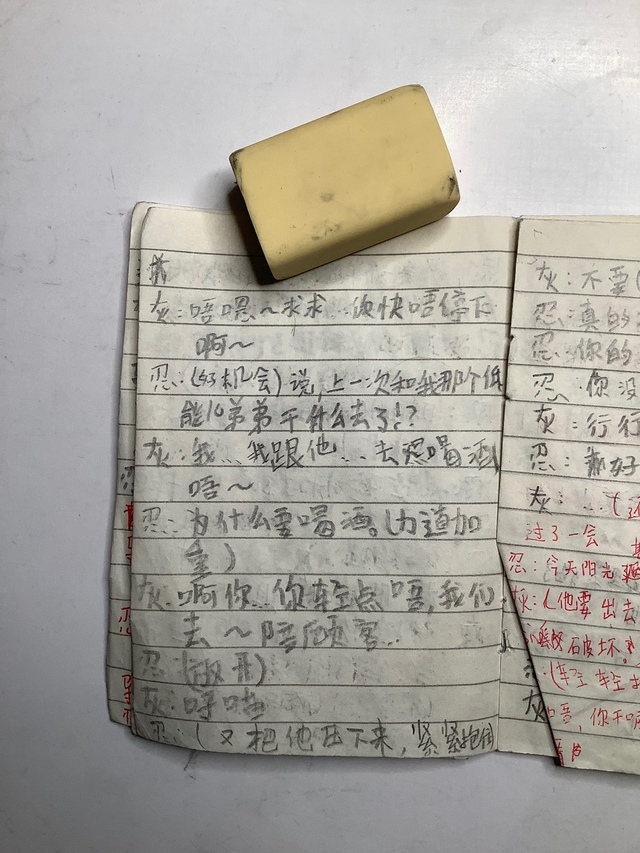 灰：唔嗯～求求…你快唔停下
啊～
忍：(好机会)说，上一次和我那个低
能儿弟弟干什么去了!?
灰：我…我跟他…去喝酒
唔～
忍：为什么要喝酒。(力道加
重)
灰：啊你…你轻点唔，我们
去～陪顾客..
忍：(放开)
灰：呼
忍：(又把他压下来，紧紧抱住
灰：不要(
忍：真的
忍：你的
忍：你没
灰：行行
忍：都好
灰：…(
过了一会
忍：今天阳光
灰：(他要出去
破坏
(轻轻
灰唔，你干嘛